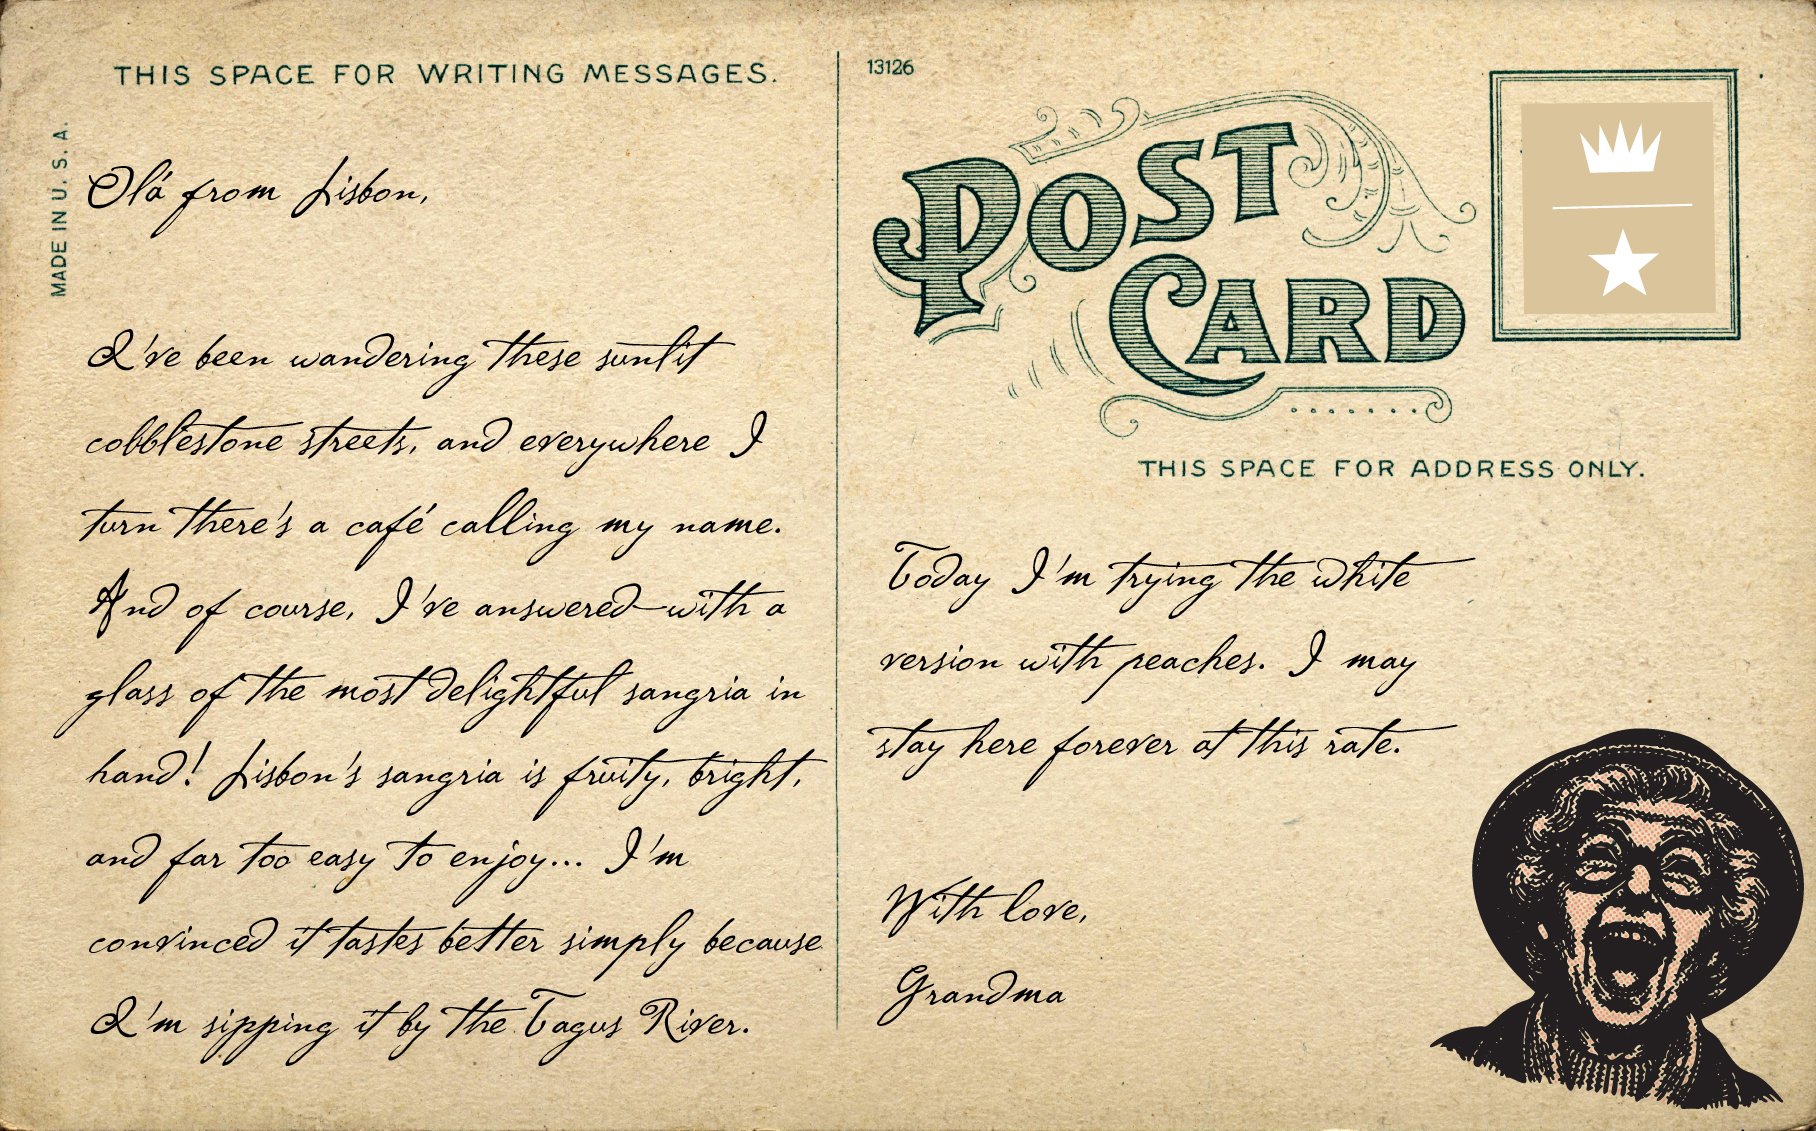 THIS SPACE FOR WRITING MESSAGES.
MADE IN U. S. A.
Olá from Lisbon,
I've been wandering these sunlit
cobblestone streets, and everywhere I
turn there's a café calling my name.
And of course, I've answered—with a
glass of the most delightful sangria in
hand! Lisbon's sangria is fruity, bright,
and far too easy to enjoy... I'm
convinced it tastes better simply because
I'm sipping it by the Tagus River.
13126
POST
CARD
THIS SPACE FOR ADDRESS ONLY.
Today I'm trying the white
version with peaches. I may
stay here forever at this rate.
With love,
Grandma